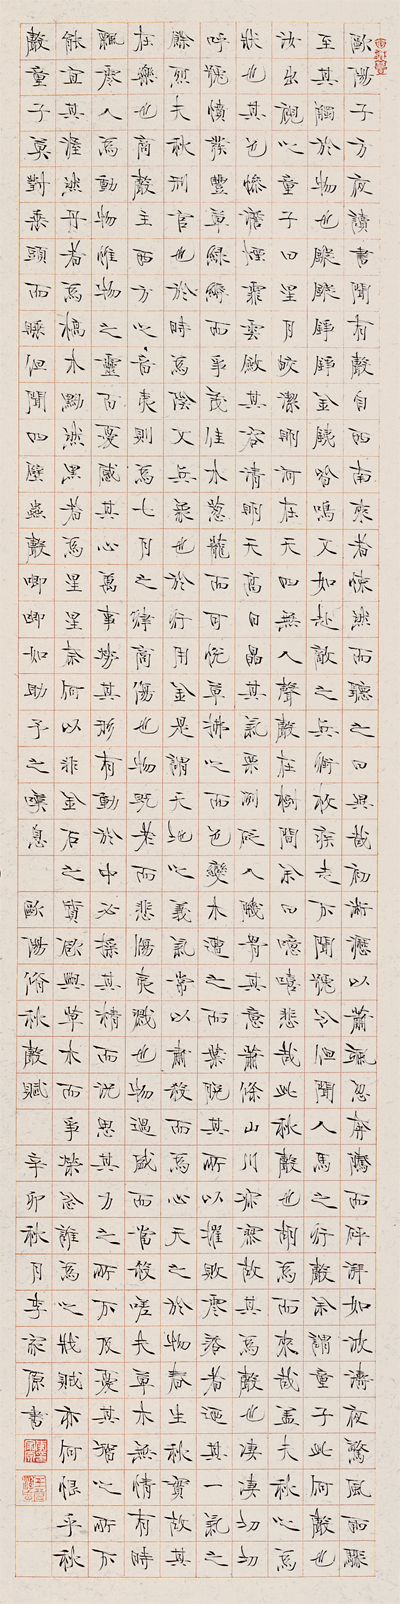 歐陽子方夜讀書聞有聲自西南來者悚然而聽之曰異哉初淅瀝以蕭颯忽奔騰而砰湃如波濤夜驚風雨驟
至其觸於物也鏦鏦錚錚金鐵皆鳴又如赴敵之兵銜枚疾走不聞號令但聞人馬之行聲余謂童子此何聲也
汝出視之童子曰星月皎潔明河在天四無人聲聲在樹間余曰噫嘻悲哉此秋聲也胡為而來哉蓋夫秋之為
狀也其色慘澹煙霏雲斂其容清明天高日晶其氣栗冽砭人肌骨其意蕭條山川寂寥故其為聲也淒淒切切
呼號憤發豐草綠縟而爭茂佳木蔥蘢而可悅草拂之而色變木遭之而葉脫其所以摧敗零落者迺其一氣之
餘烈夫秋刑官也於時為陰又兵象也於行用金是謂天地之義氣常以肅殺而為心天之於物春生秋實故其
在樂也商聲主西方之音夷則為七月之律商傷也物既老而悲傷夷戮也物過盛而當殺嗟夫草木無情有時
飄零人為動物惟物之靈百憂感其心萬事勞其形有動於中必搖其精而況思其力之所不及憂其智之所不
能宜其渥然丹者為槁木黟然黑者為星星奈何以非金石之質欲與草木而爭榮念誰為之戕賊亦何恨乎秋
聲童子莫對垂頭而睡但聞四壁蟲聲唧唧如助予之嘆息 歐陽脩秋聲賦 辛卯秋月李家原書